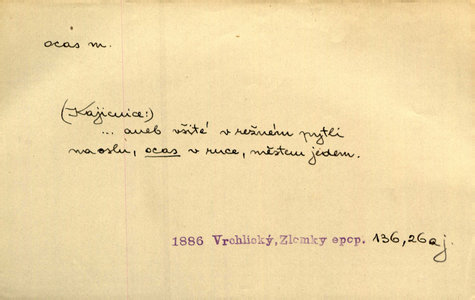 ocas m.
(Kajicnice:)
... aneb všité v režném pytli
na oslu, ocas v ruce, městem jedem.
1886 Vrchlický, Zlomky epop. 136, 26aj.